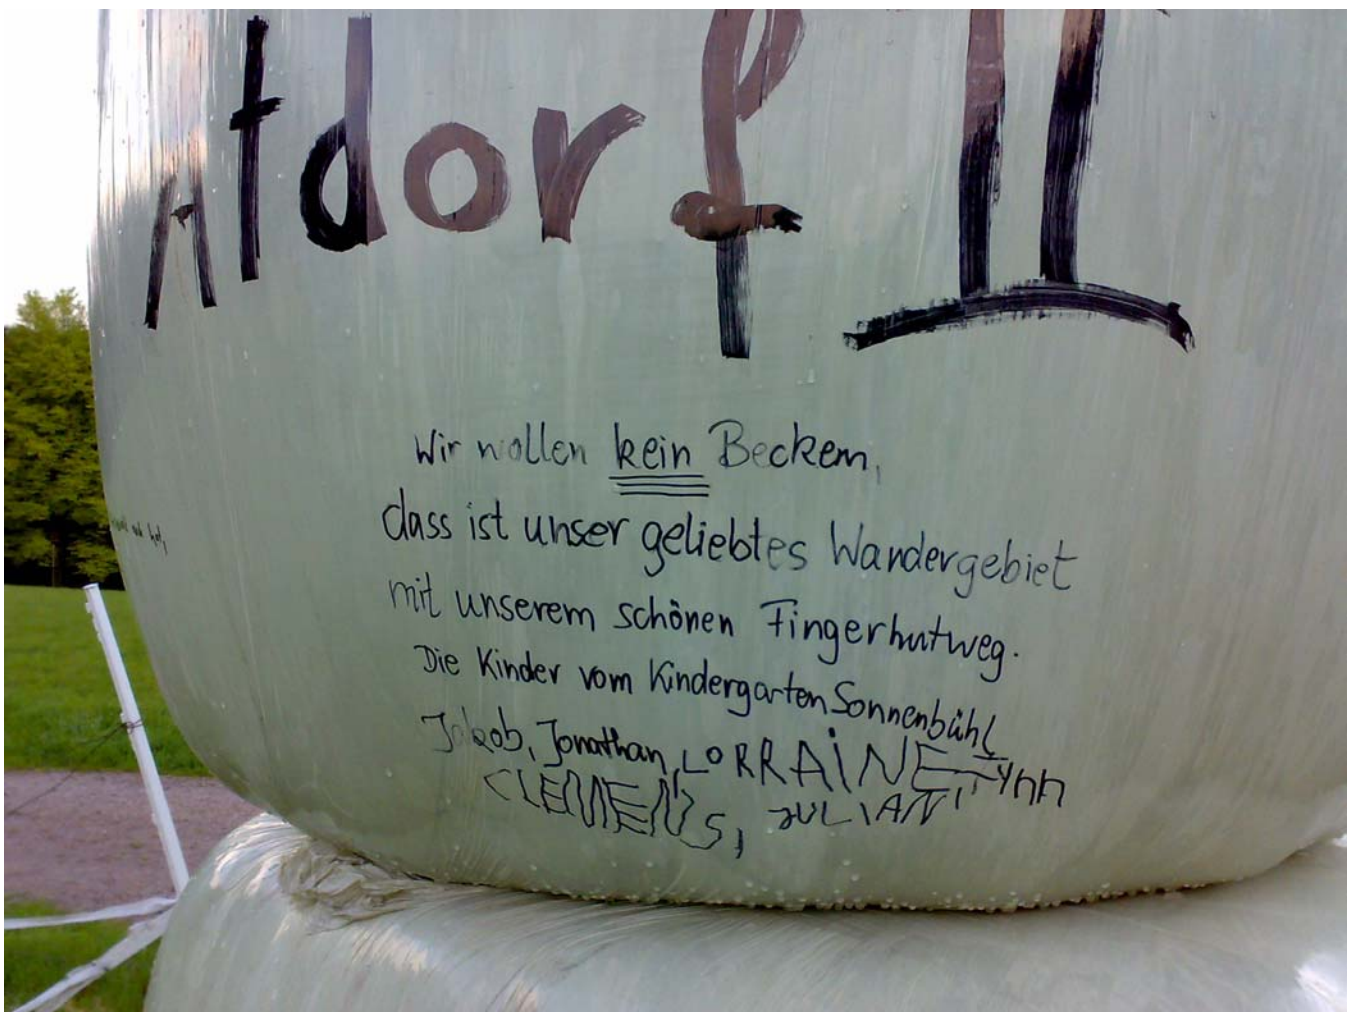 Atdorf II
Wir wollen kein Becken,
dass ist unser geliebtes Wandergebiet
mit unserem schönen Fingerhutweg.
Die Kinder vom Kindergarten Sonnenbühl
Jakob, Jonathan, LORRAINE Fynn
CLEMENS, JULIAN